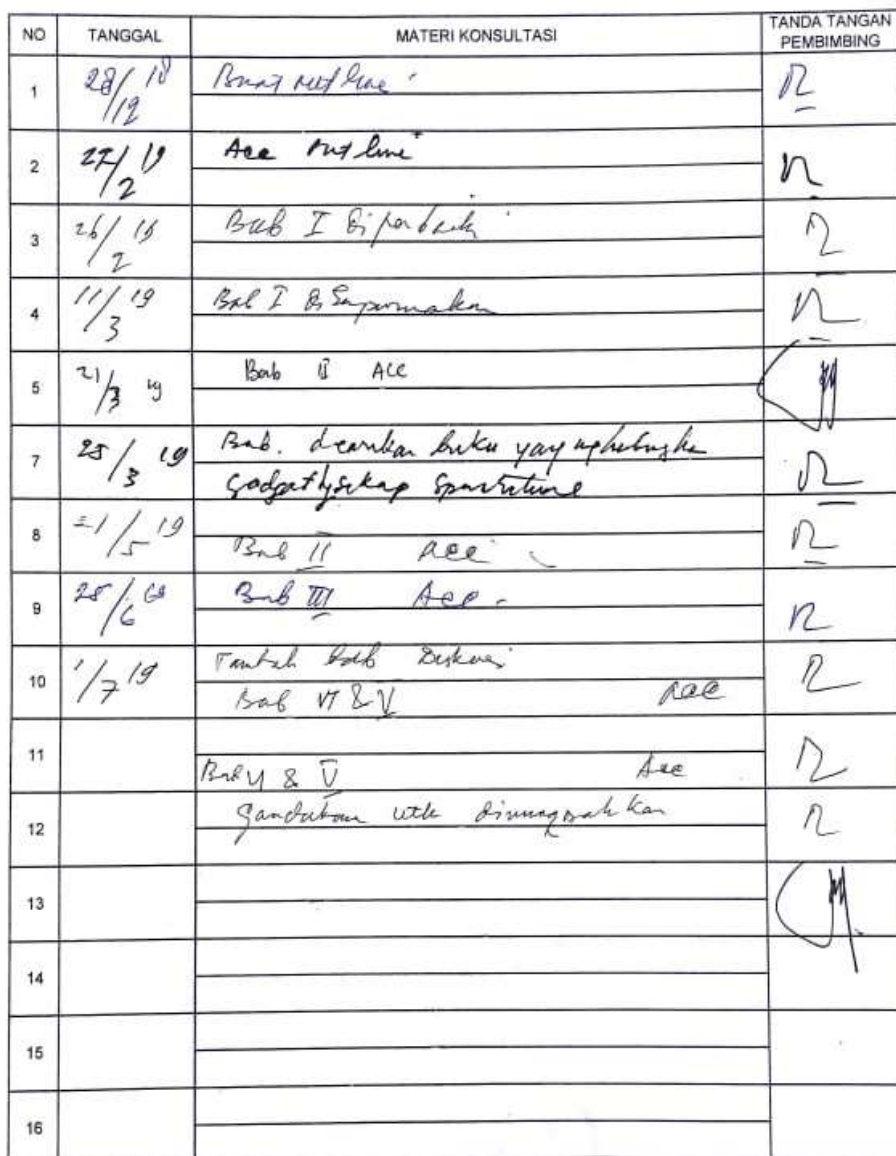 NO TANGGAL MATERI KONSULTASI TANDA TANGAN PEMBIMBING
1 28/12 18 Buat outline
2 27/2 19 Acc outline
3 26/2 19 Bab I diperbaiki
4 11/3 19 Bab I disempurnakan
5 21/3 19 Bab II ACC
7 25/3 19 Bab. dicarikan buku yang
gadget
8 21/5 19
Bab II acc
9 25/6 Bab III Acc
10 1/7 19 Tambah bab Diskusi
Bab VI & V acc
11
Bab & V Acc
12 Gandakan utk dimunaqosahkan
13
14
15
16